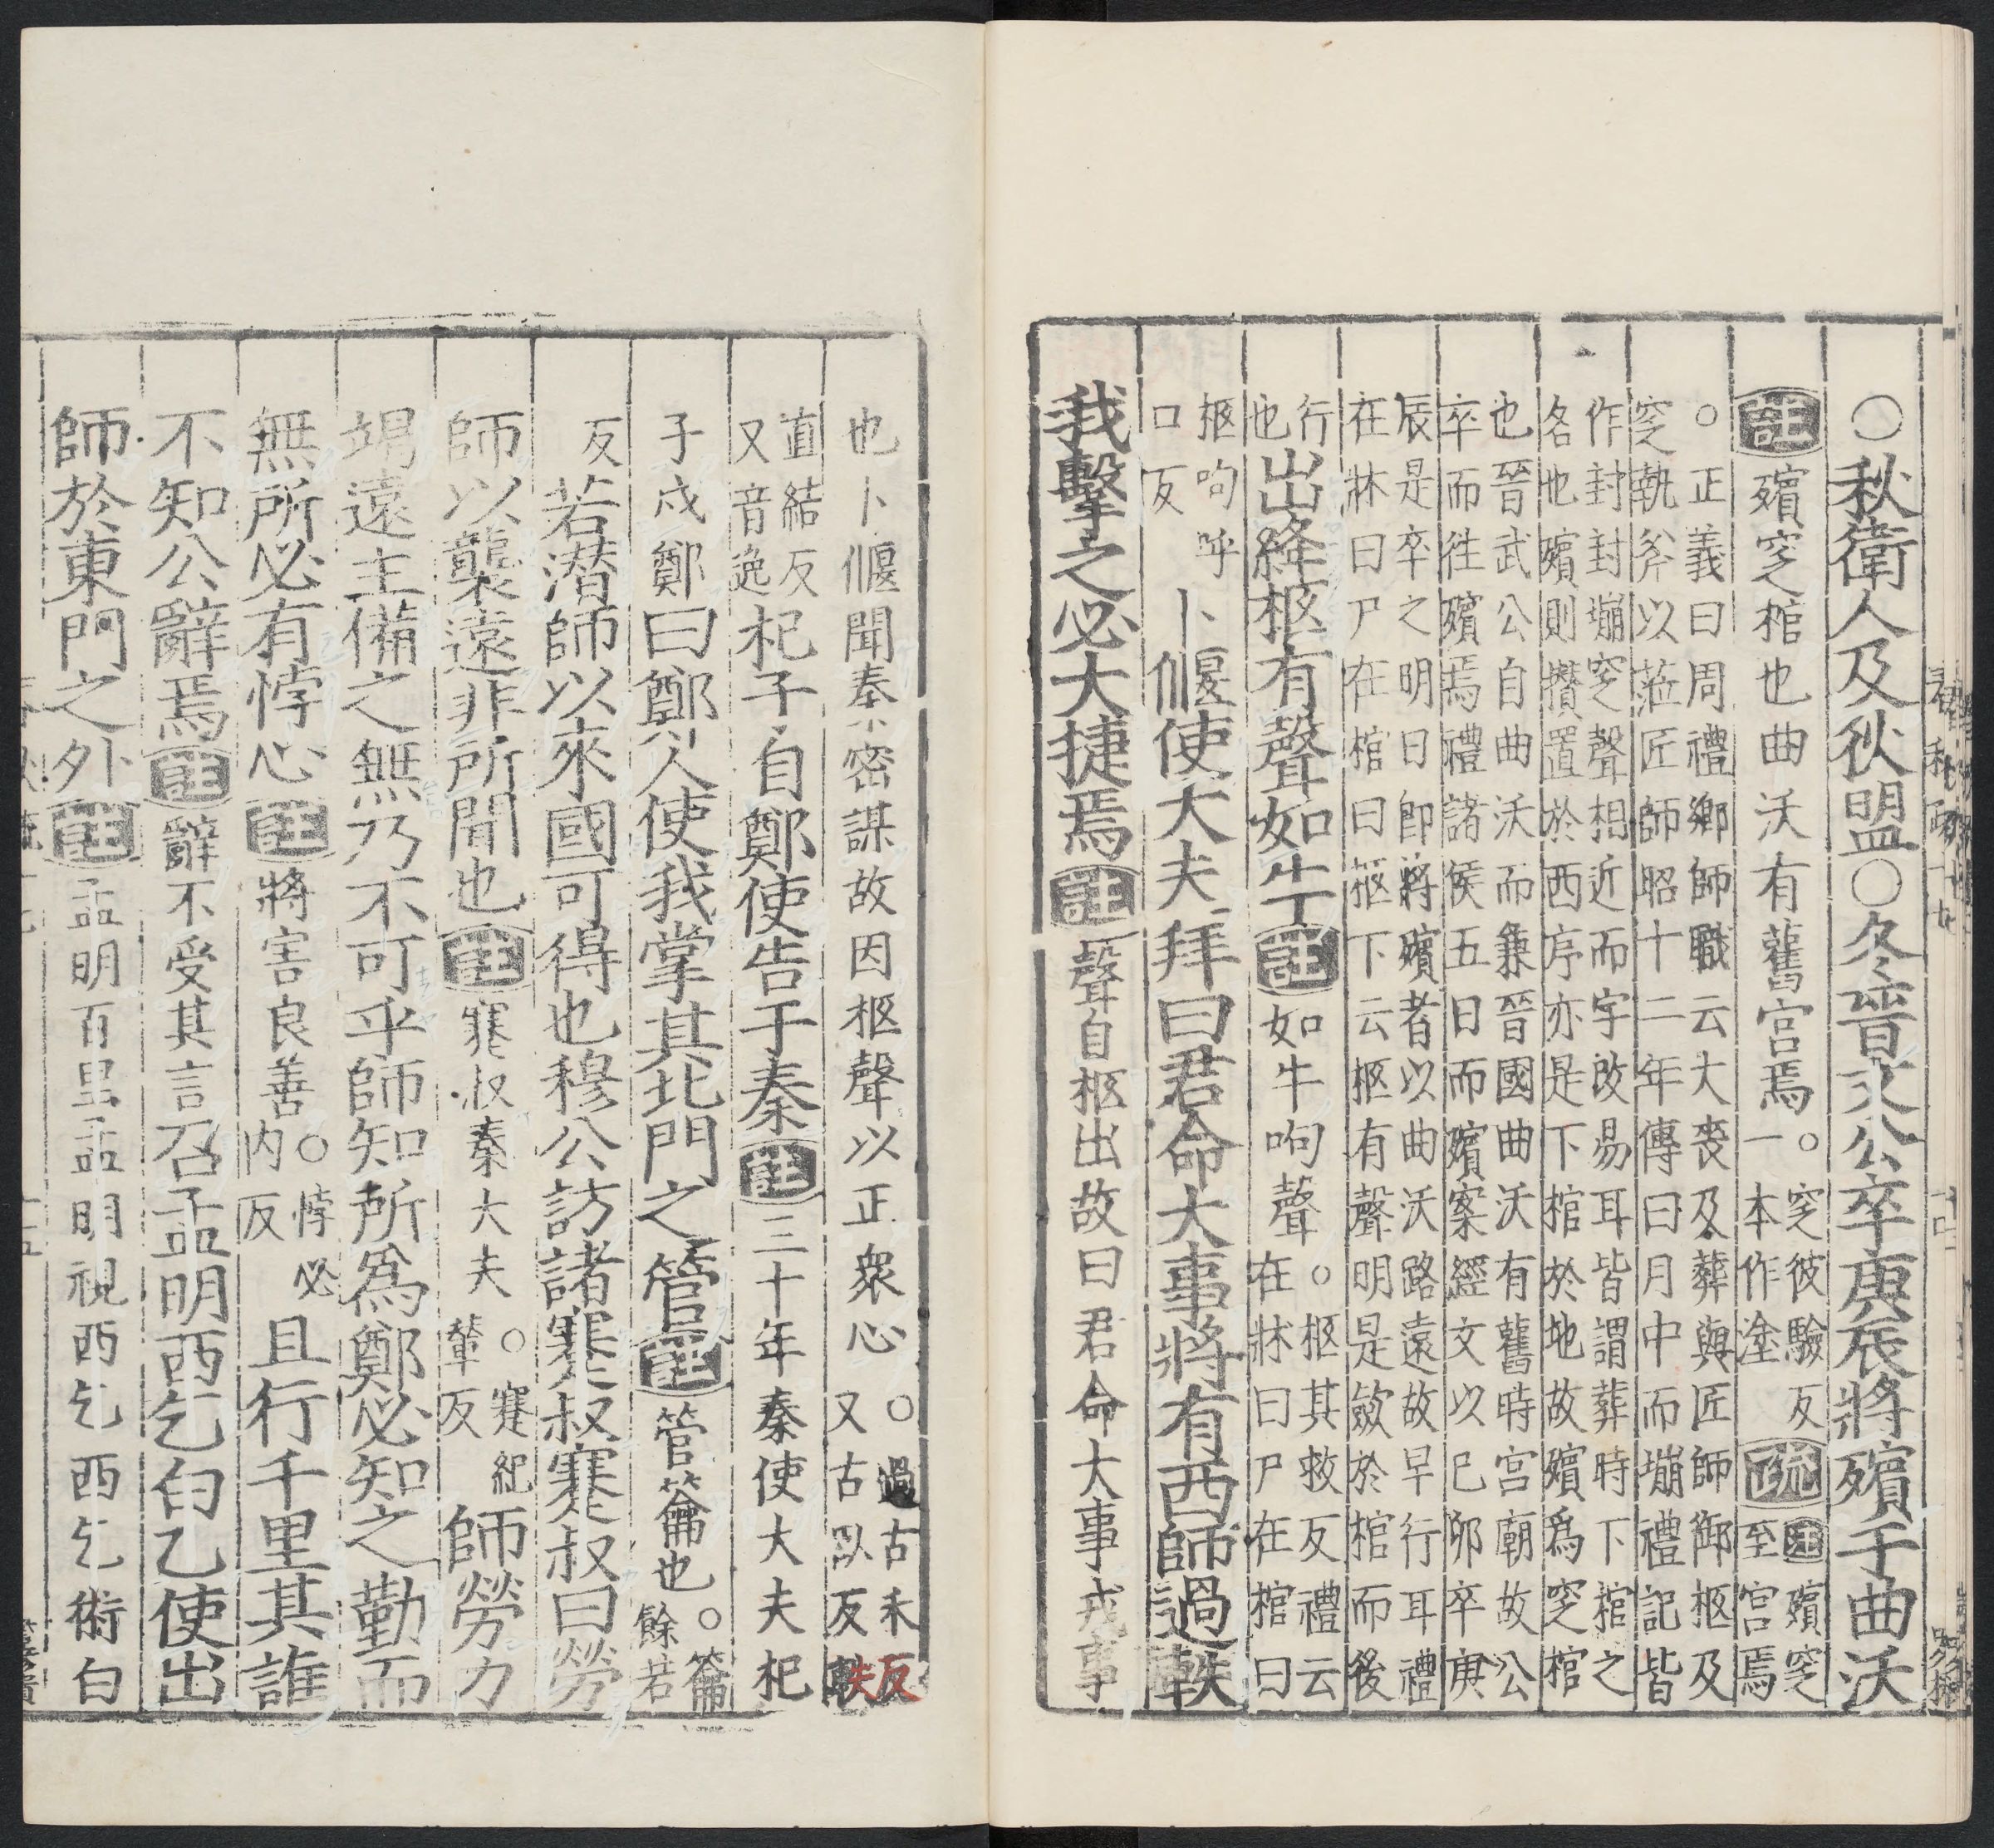 ○秋衛人及狄盟○冬晉文公卒庚辰將殯于曲沃
註殯窆棺也曲沃有舊宮焉○窆彼驗反一本作塗疏註殯窆至宮焉
○正義曰周禮鄉師職云大喪及葬與匠師御柩及
窆執斧以蒞匠師昭十二年傳曰日中而塴禮記皆
作封封塴窆聲相近而字改易耳皆謂葬時下棺之
名也殯則攢置於西序亦是下棺於地故殯爲窆棺
也晉武公自曲沃而兼晉國曲沃有舊時宮廟故公
卒而徃殯焉禮諸侯五日而殯案經文以己卯卒庚
辰是卒之明日即將殯者以曲沃路遠故早行耳禮
在牀曰尸在棺曰柩下云柩有聲明是斂於棺而後
行也出絳柩有聲如牛註如牛呴聲○柩其救反禮云在牀曰尸在棺曰
柩呴呼口反卜偃使大夫拜曰君命大事將有西師過軼
我擊之必大捷焉註聲自柩出故曰君命大事戎事
也卜偃聞秦密謀故因柩聲以正衆心○過古禾反又古臥反軼
直結反又音逸杞子自鄭使告于秦註三十年秦使大夫杞
子戍鄭曰鄭人使我掌其北門之管註管籥也○籥餘若
反若潛師以來國可得也穆公訪諸蹇叔蹇叔曰勞
師以襲遠非所聞也註蹇叔秦大夫○蹇紀輦反師勞力
竭遠主備之無乃不可乎師知所爲鄭必知之勤而
無所必有悖心註將害良善○悖必內反且行千里其誰
不知公辭焉註辭不受其言召孟明西乞白乙使出
師於東門之外註孟明百里孟明視西乞西乞術白